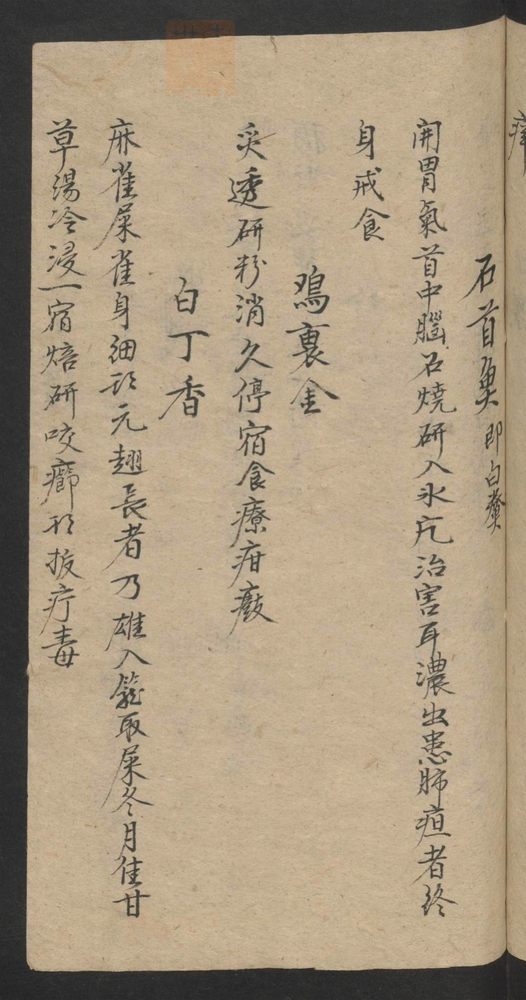 石首魚 即白鰲
開胃氣首中腦石燒研入氷片治害耳濃出患肺疸者終
身戒食
鳮裏金
炙透研粉消久停宿食療疳癈
白丁香
麻雀屎雀身細頭元翅長者乃雄入籠取屎冬月佳甘
草湯冷浸一宿焙研咬癤頭拔疔毒